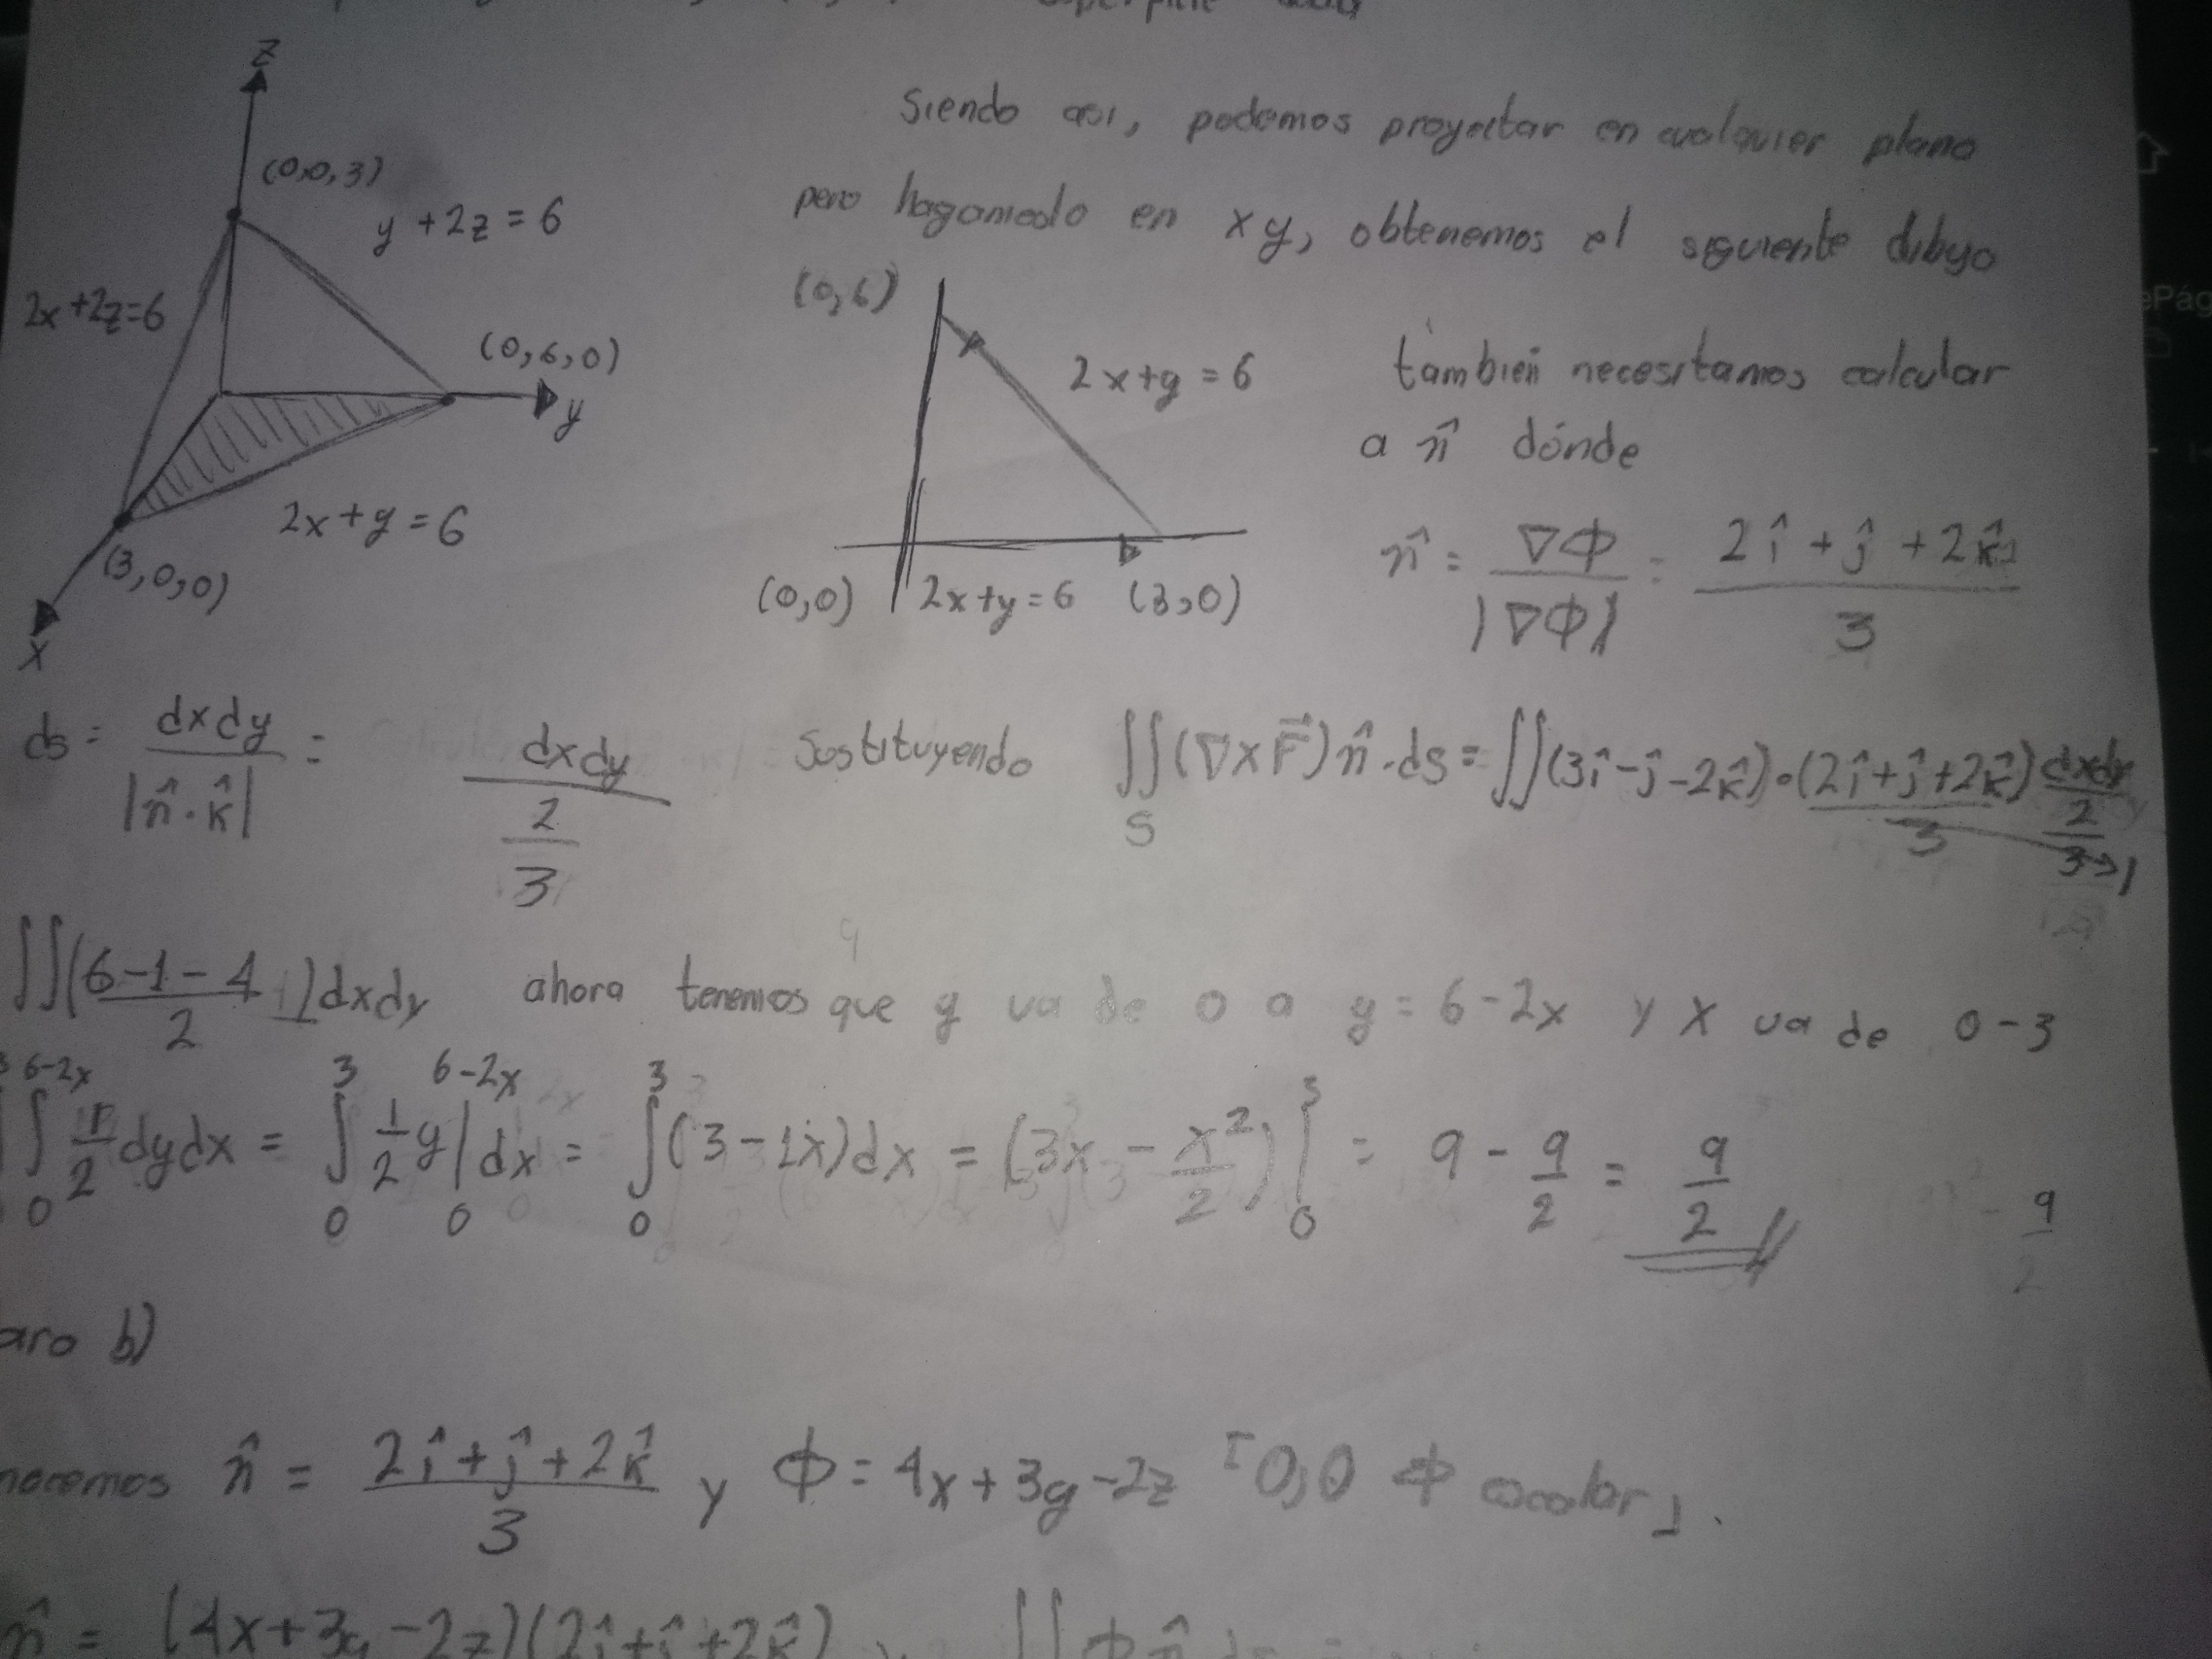 superficie
z
(0,0,3)
y + 2z = 6
2x+2z=6
(0,6,0)
y
2x+y=6
(3,0,0)
x
Siendo asi, podemos proyectar en cualquier plano
pero hagamoslo en xy, obtenemos el siguiente dibujo
(0,6)
2x+y=6
(0,0) 2x+y=6 (3,0)
también necesitamos calcular
a n̂ dónde
n̂ = ∇Φ / |∇Φ| = (2î + ĵ + 2k̂) / 3
ds = dxdy / |n̂·k̂| = dxdy / (2/3) Sustituyendo ∬_S (∇×F⃗) n̂·ds = ∬(3î-ĵ-2k̂)·(2î+ĵ+2k̂)/3 dxdy/(2/3) → 1
∬((6-1-4)/2) dxdy ahora tenemos que y va de 0 a y = 6-2x y x va de 0-3
∫_0^{6-2x} 1/2 dydx = ∫_0^3 1/2 y |_0^{6-2x} dx = ∫_0^3 (3-1x)dx = (3x - x²/2) |_0^3 = 9 - 9/2 = 9/2
- 9/2
b)
n̂ = (2î+ĵ+2k̂)/3 y Φ = 4x+3y-2z 「0,0 Φ escalar」.
n̂ = (4x+3y-2z)(2î+ĵ+2k̂) ∬ Φ n̂ ds =